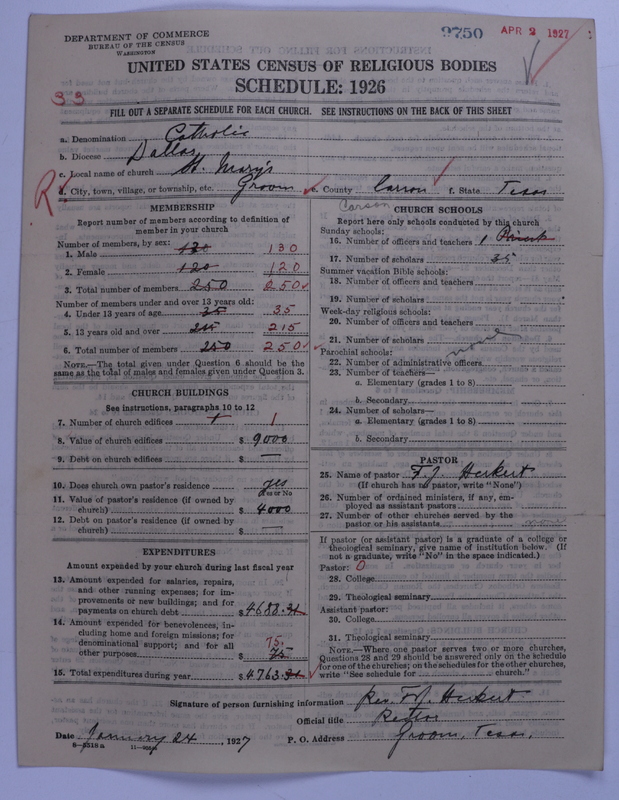 DEPARTMENT OF COMMERCE
BUREAU OF THE CENSUS
WASHINGTON
9750
APR 2 1927
UNITED STATES CENSUS OF RELIGIOUS BODIES
SCHEDULE: 1926
33
FILL OUT A SEPARATE SCHEDULE FOR EACH CHURCH. SEE INSTRUCTIONS ON THE BACK OF THIS SHEET
a. Denomination Catholic
b. Diocese Dallas
c. Local name of church St. Mary's
R d. City, town, village, or township, etc. Groom e. County Carson f. State Texas
Carson
MEMBERSHIP
Report number of members according to definition of
member in your church
Number of members, by sex:
1. Male 130 130
2. Female 120 120
3. Total number of members 250 250
Number of members under and over 13 years old:
4. Under 13 years of age 35 35
5. 13 years old and over 215 215
6. Total number of members 250 250
NOTE.—The total given under Question 6 should be the
same as the total of males and females given under Question 3.
CHURCH BUILDINGS
See instructions, paragraphs 10 to 12
7. Number of church edifices 1
8. Value of church edifices $ 9000
9. Debt on church edifices $ —
10. Does church own pastor's residence yes
Yes or No
11. Value of pastor's residence (if owned by
church) $ 4000
12. Debt on pastor's residence (if owned by
church) $ —
EXPENDITURES
Amount expended by your church during last fiscal year
13. Amount expended for salaries, repairs,
and other running expenses; for im-
provements or new buildings; and for
payments on church debt $ 4688.31
14. Amount expended for benevolences, in-
cluding home and foreign missions; for
denominational support; and for all
75.
other purposes $ 75
15. Total expenditures during year $ 4763.31
CHURCH SCHOOLS
Report here only schools conducted by this church
Sunday schools:
16. Number of officers and teachers 1 Priest
17. Number of scholars 35
Summer vacation Bible schools:
18. Number of officers and teachers
19. Number of scholars
Week-day religious schools:
20. Number of officers and teachers
21. Number of scholars none
Parochial schools:
22. Number of administrative officers
23. Number of teachers—
a. Elementary (grades 1 to 8)
b. Secondary
24. Number of scholars—
a. Elementary (grades 1 to 8)
b. Secondary
PASTOR
25. Name of pastor F. J. Herkert
(If church has no pastor, write "None")
26. Number of ordained ministers, if any, em-
ployed as assistant pastors
27. Number of other churches served by the
pastor or his assistants
If pastor (or assistant pastor) is a graduate of a college or
theological seminary, give name of institution below. (If
not a graduate, write "No" in the space indicated.)
Pastor: 0
28. College
29. Theological seminary
Assistant pastor:
30. College
31. Theological seminary
NOTE.—Where one pastor serves two or more churches,
Questions 28 and 29 should be answered only on the schedule
for one of the churches; on the schedules for the other churches,
write "See schedule for church."
Signature of person furnishing information Rev. F. J. Herkert
Official title Pastor
Date January 24, 1927 P. O. Address Groom, Texas,